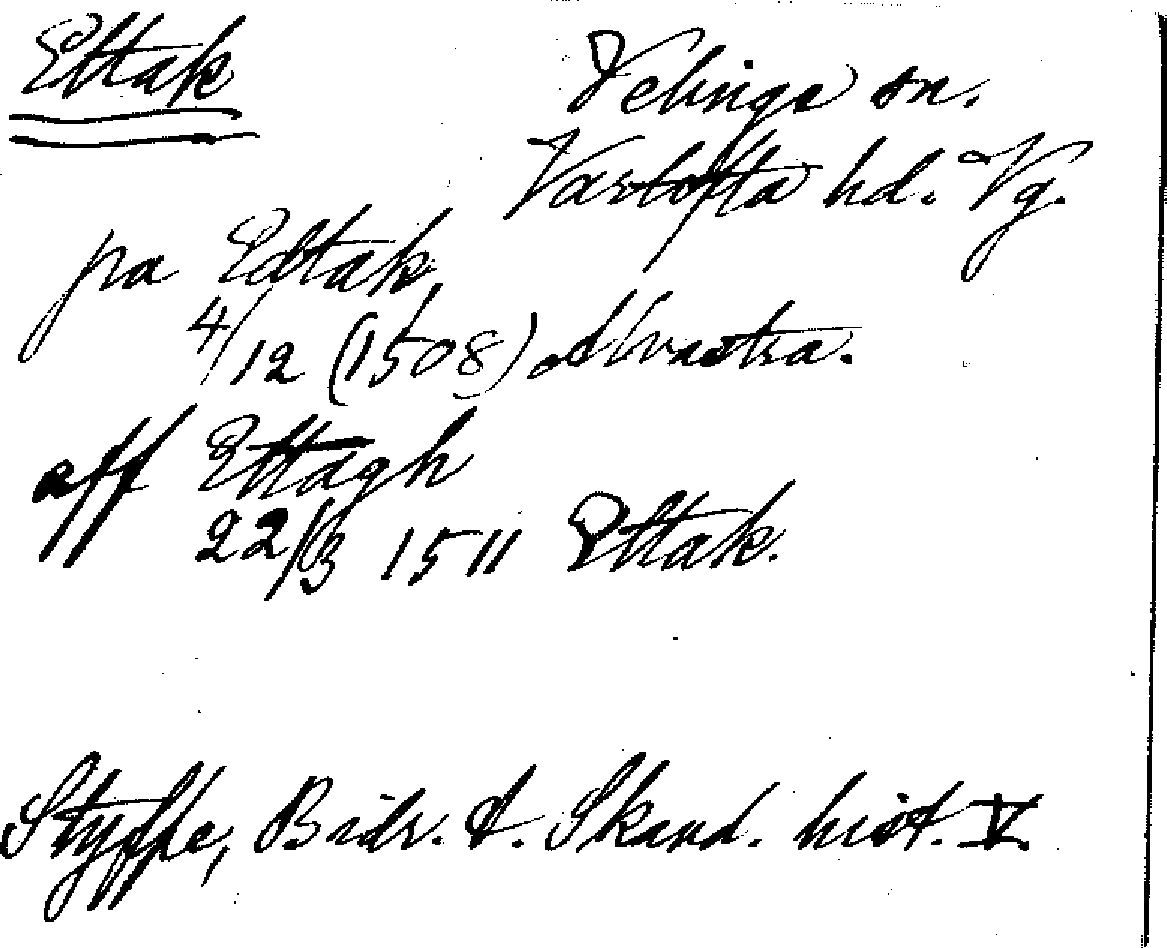 Ettak
Velinge sn.
Vartofta hd. Vg.
pa Edtak
4/12 (1508) Alvastra.
aff Ettagh
22/3 1511 Ettak.
Styffe, Bidr. t. Skand. hist. V.